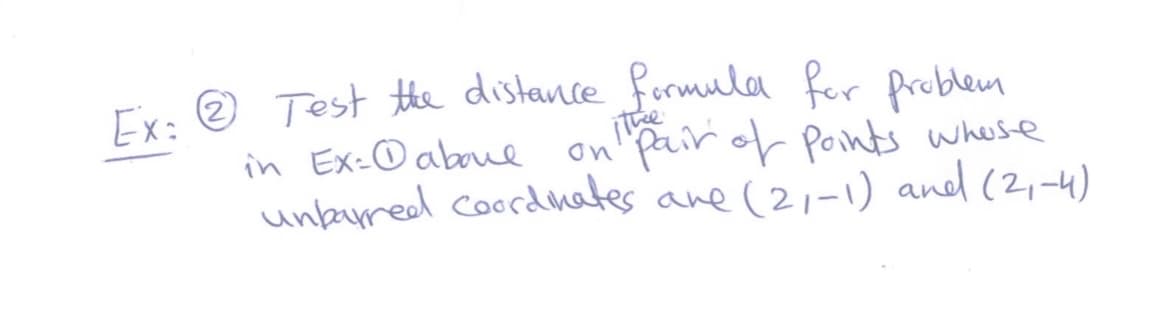 Ex: ② Test the distance formula for problem
in Ex:① above on the pair of points whose
unbarred coordinates are (2,-1) and (2,-4)